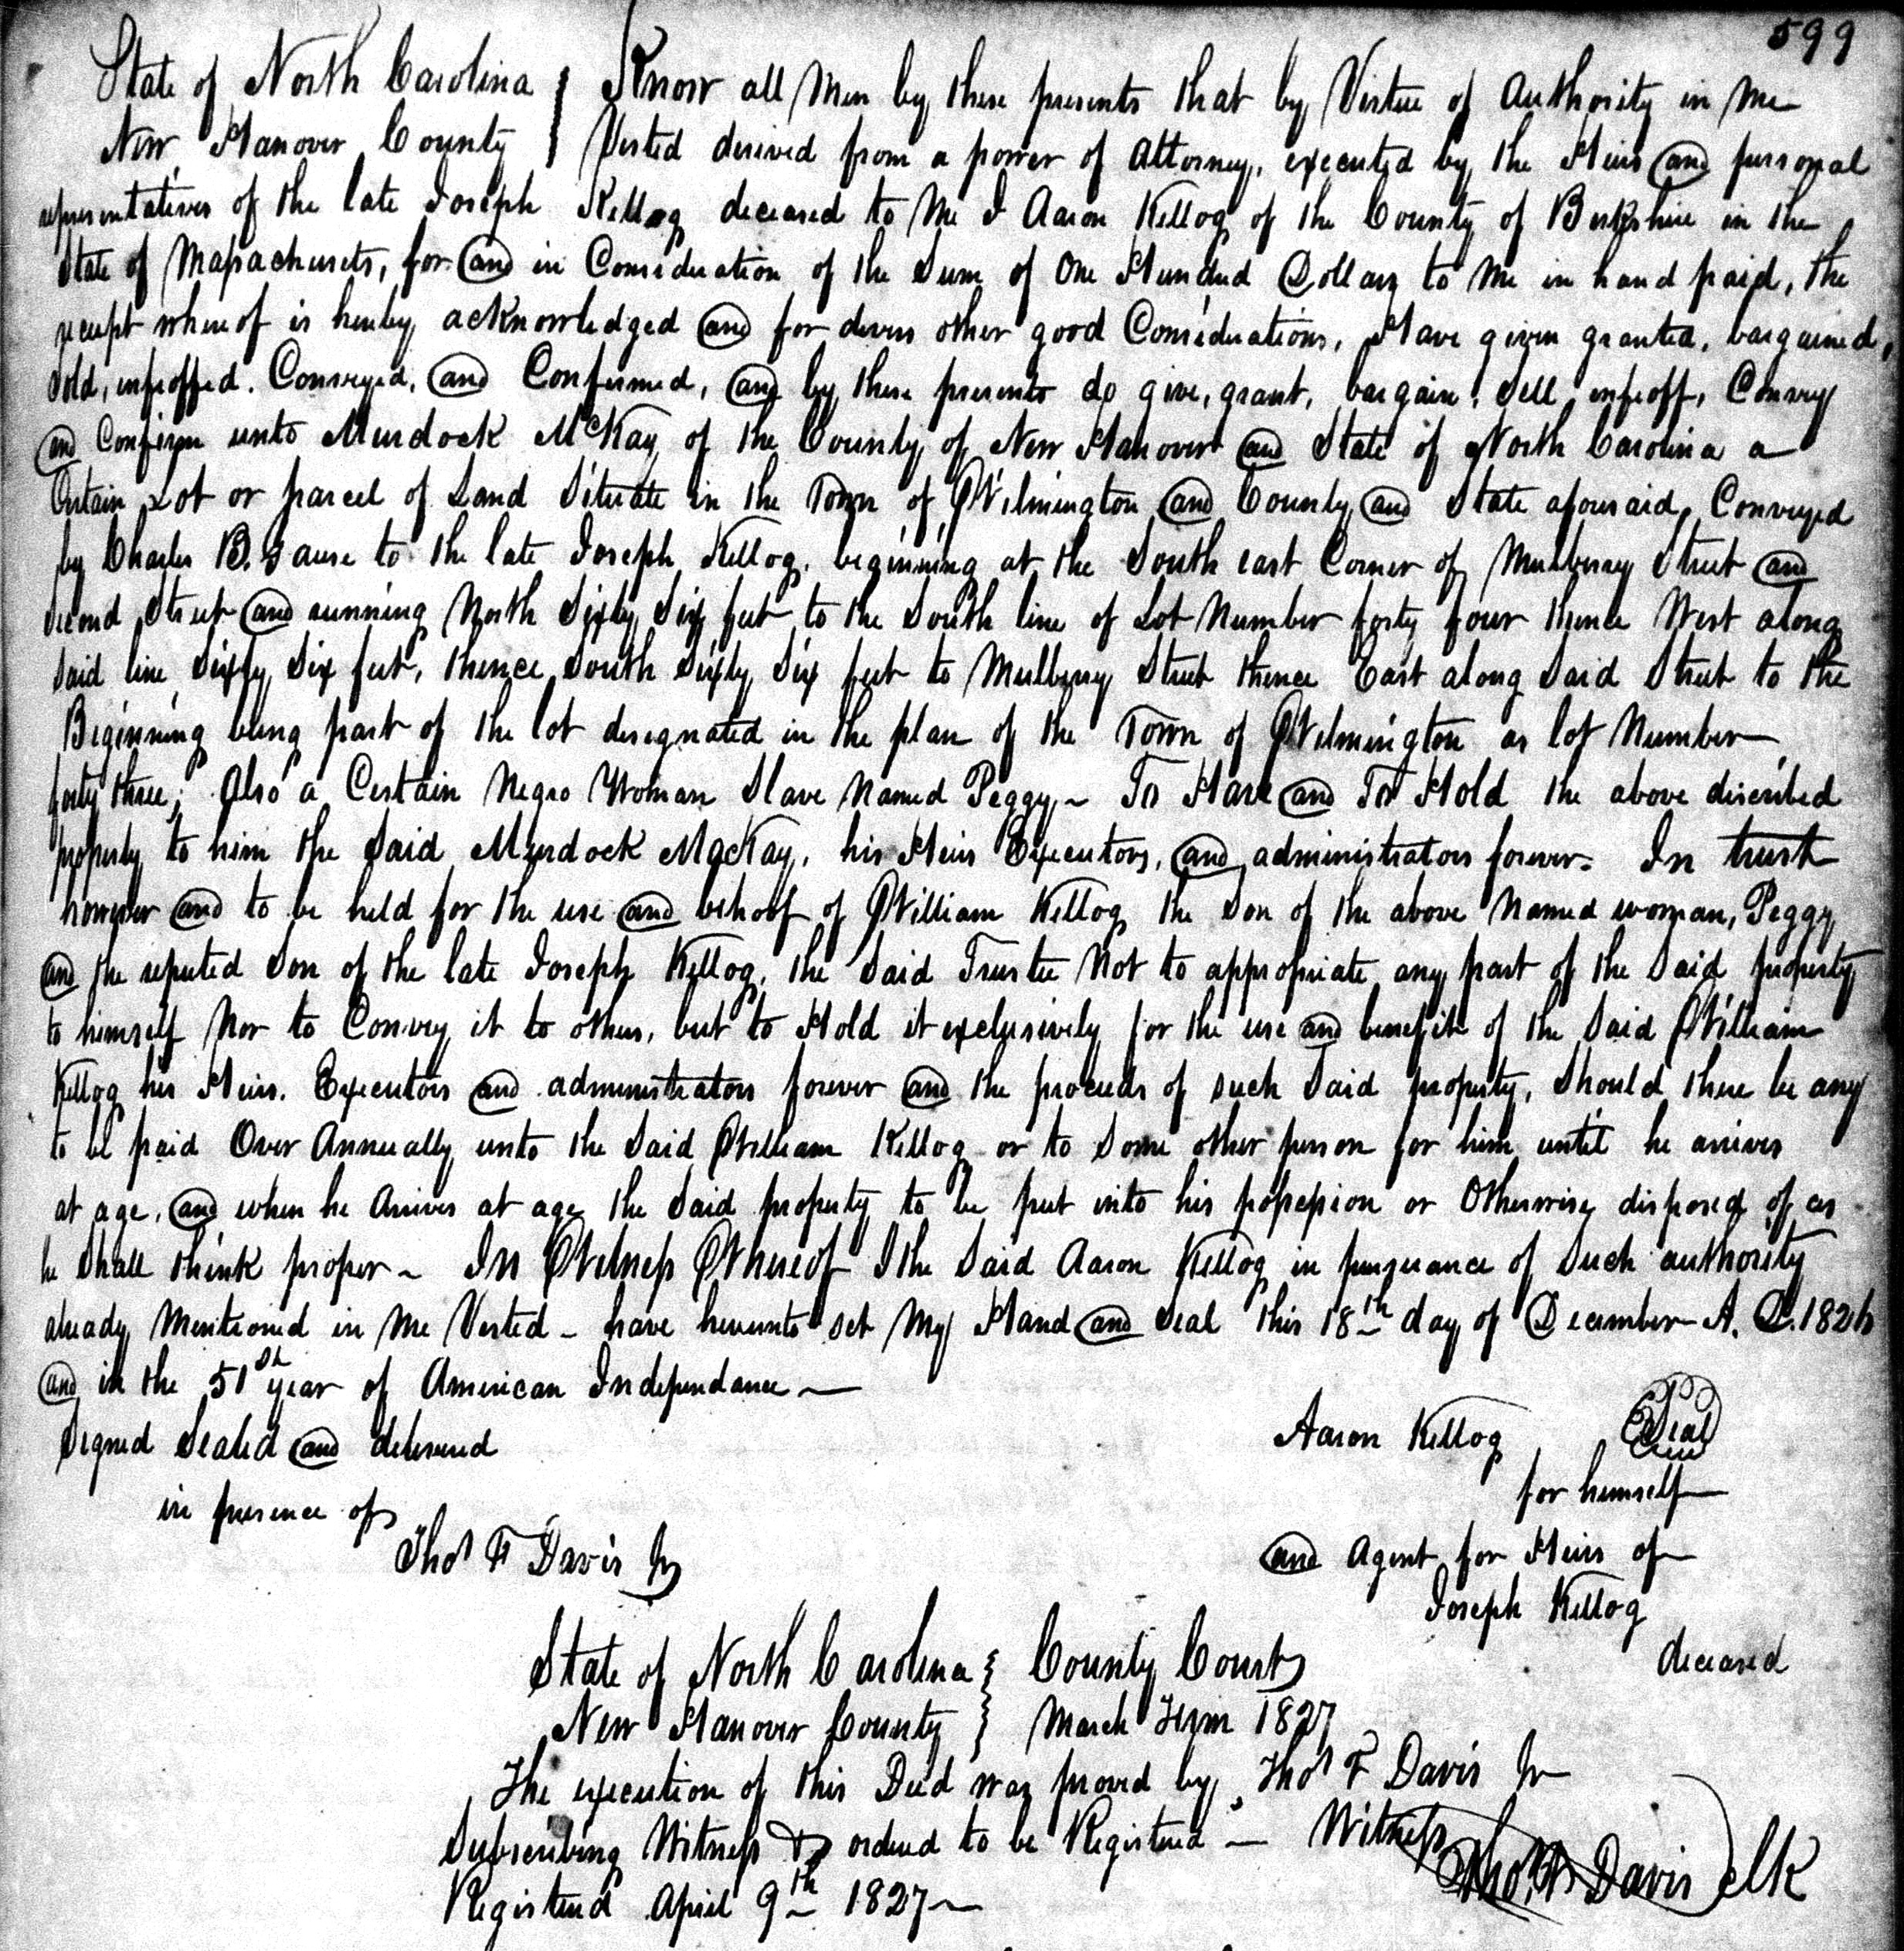 599
State of North Carolina } Know all Men by these presents that by Virtue of Authority in Me
New Hanover County } Vested derived from a power of Attorney, executed by the Heirs and personal
representatives of the late Joseph Kellog deceased to Me I Aaron Kellog of the County of Berkshire in the
State of Massachusets, for and in Consideration of the Sum of One Hundred Dollars to Me in hand paid, the
receipt whereof is hereby acknowledged and for divers other good Considerations, Have given granted, bargained,
Sold, infeoffed. Conveyed, and Confirmed, and by these presents do give, grant, bargain, Sell, infeoff, Convey
and Confirm unto Murdock McKay of the County of New Hanover and State of North Carolina a
Certain Lot or parcel of Land Situate in the Town of Wilmington and County and State aforesaid, Conveyed
by Charles B. Gause to the late Joseph Kellog, beginning at the South east Corner of Mulberry Street and
Second Street and running North Sixty Six feet to the South line of Lot Number forty four thence West along
Said line Sixty Six feet, thence South Sixty Six feet to Mulberry Street thence East along Said Street to the
Beginning being part of the lot designated in the plan of the Town of Wilmington as lot Number
forty three; Also a Certain Negro Woman Slave Named Peggy ~ To Have and To Hold the above discribed
property to him the Said Murdock MacKay, his Heirs Executors, and administrators forever. In trust
however and to be held for the use and behoof of William Kellog the Son of the above Named woman, Peggy
and the reputed Son of the late Joseph Kellog, the Said Trustee Not to appropriate any part of the Said property
to himself Nor to Convey it to others, but to Hold it exclusively for the use and benefit of the Said William
Kellog his Heirs. Executors and administrators forever and the proceeds of such Said property, Should there be any
to be paid Over Annually unto the Said William Kellog or to Some other person for him until he arrives
at age, and when he Arrives at age the Said property to be put into his possession or Otherwise disposed of as
he Shall think proper ~ In Witness Whereof I the Said Aaron Kellog in pursuance of Such authority
already Mentioned in Me Vested - have hereunto set My Hand and Seal this 18th day of December A. D. 1826
and in the 51st year of American Independance —
Signed Sealed and delivered
Aaron Kellog Seal
in presence of
for himself
Thos F Davis Jr
and Agent for Heirs of
Joseph Kellog
deceased
State of North Carolina } County Court
New Hanover County } March Term 1827
The execution of this Deed was proved by Thos F Davis Jr
Subscribing Witness & ordered to be Registered — Witness
Thos. F Davis Clk
Registered April 9th 1827 ~